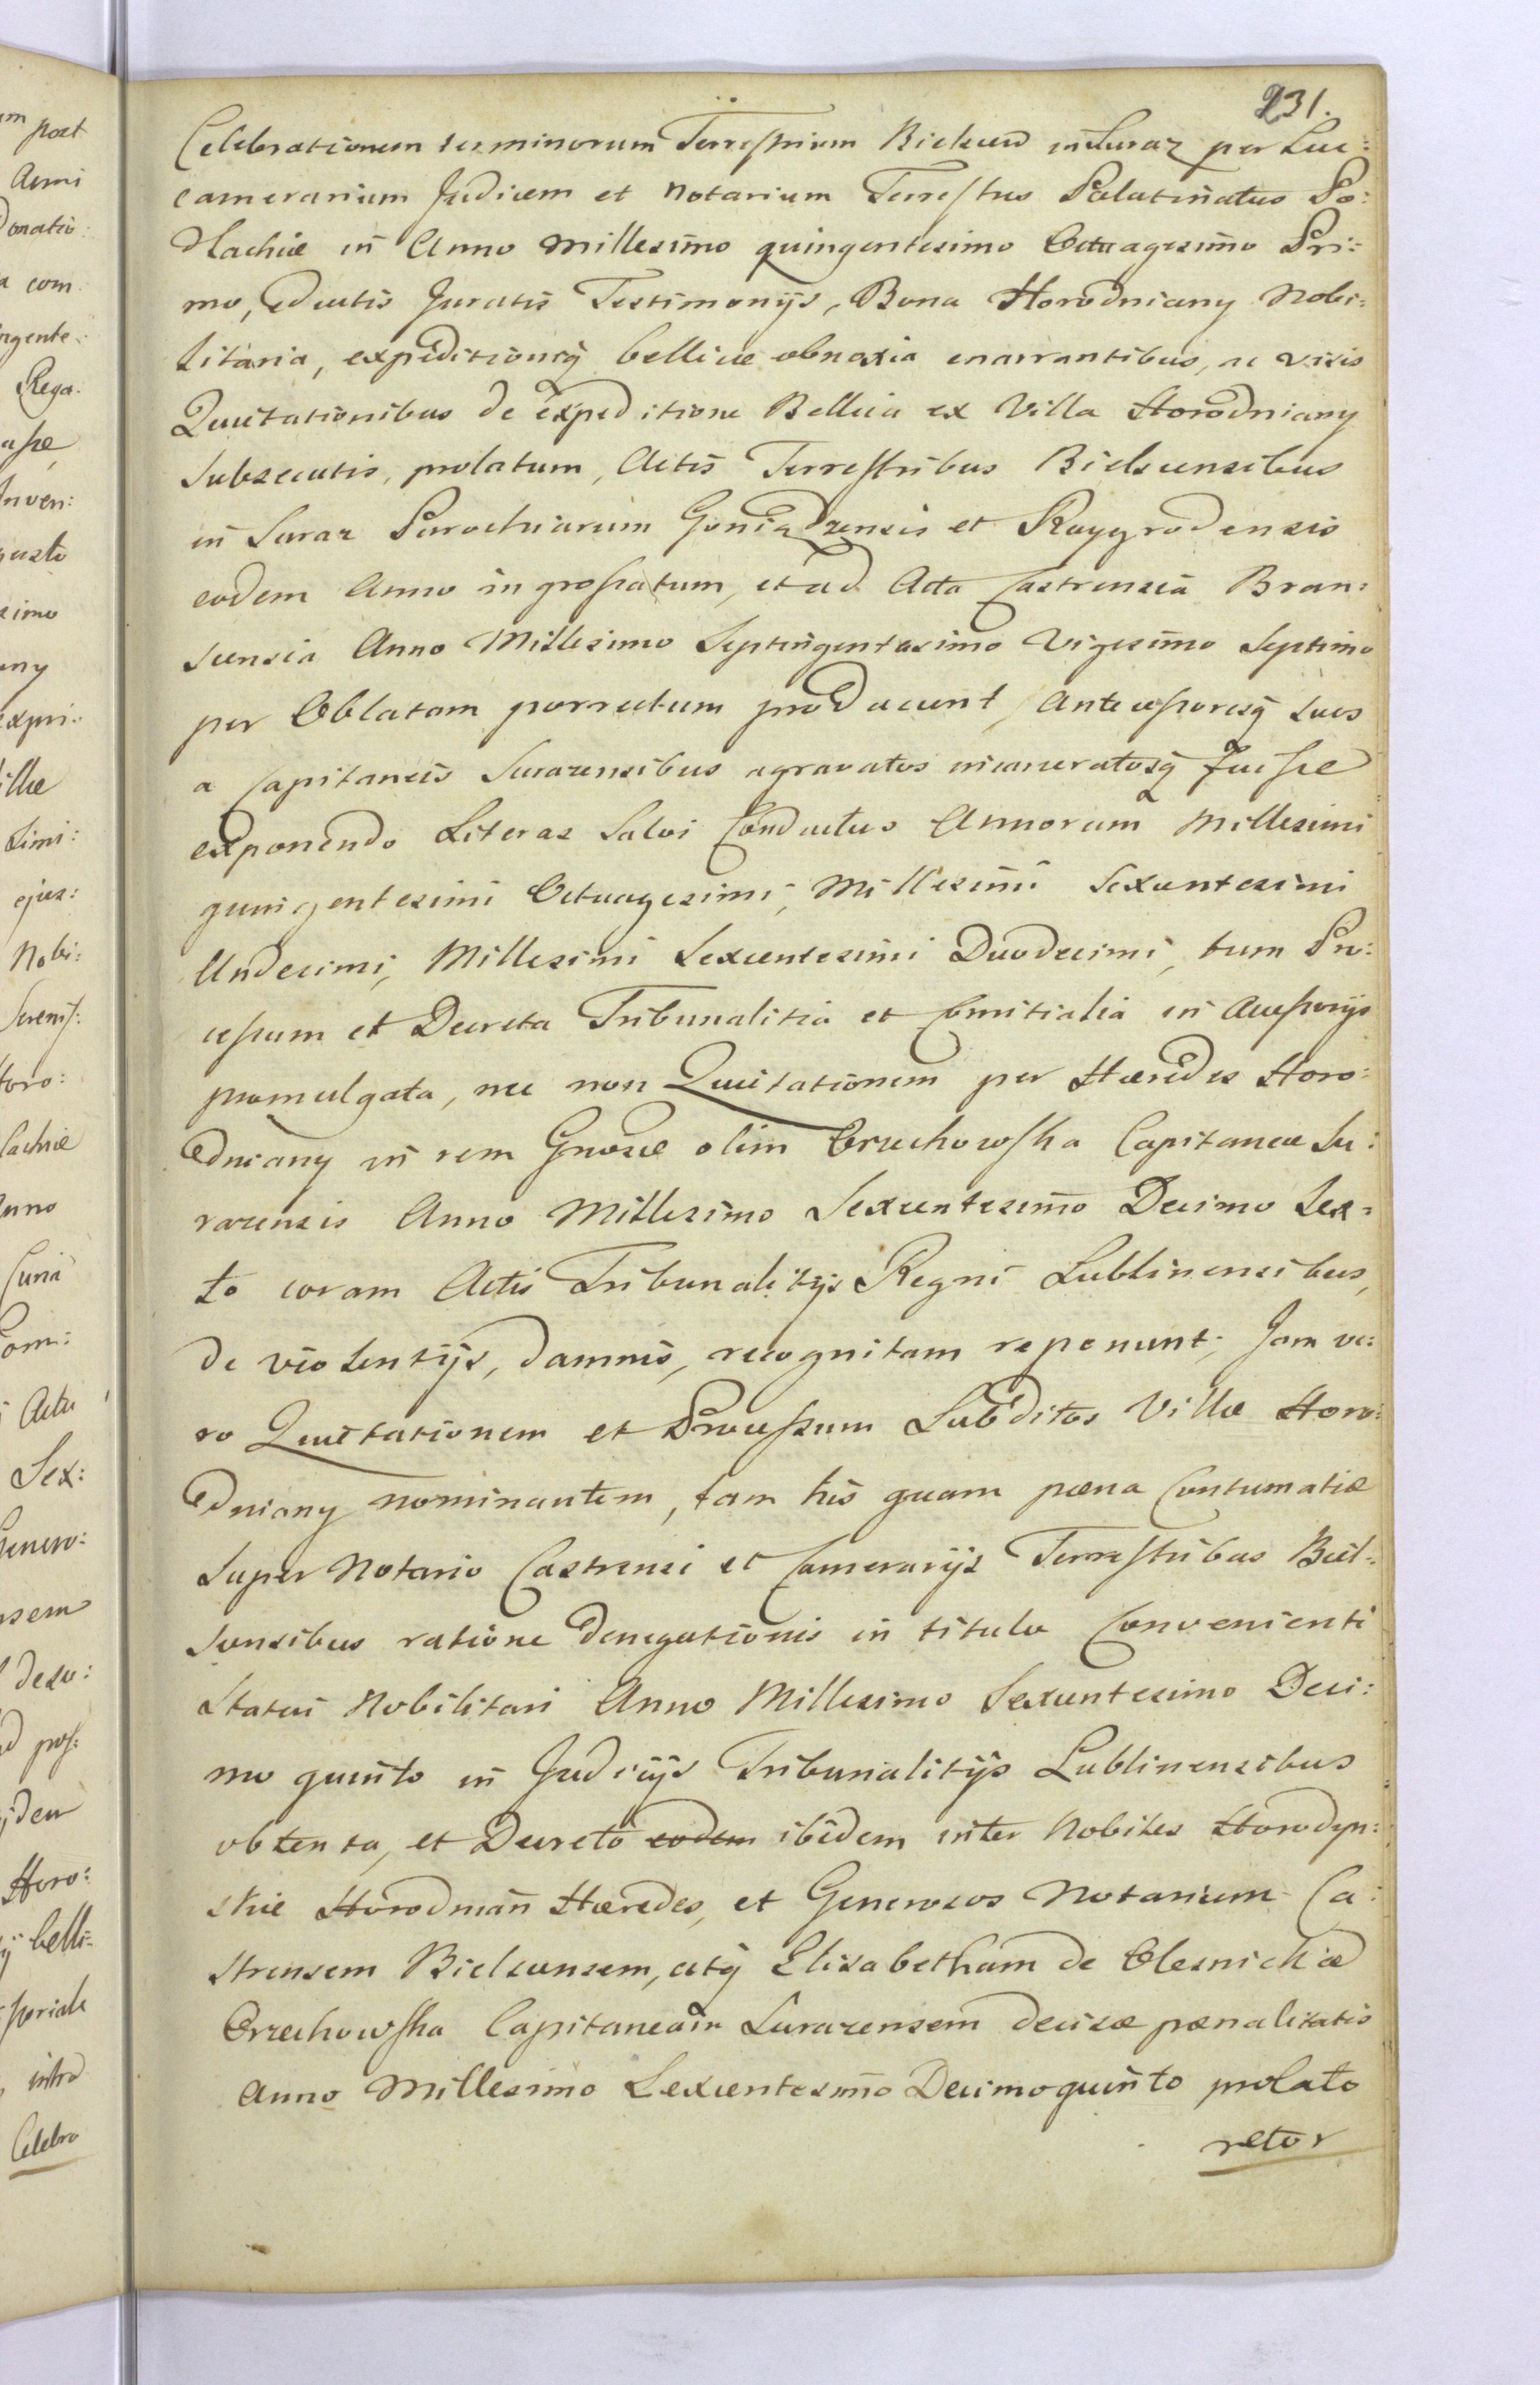 231.
Celebrationem terminorum Terrestrium Bielscen in Suraz per Suc:
camerarium Judicem et Notarium Terrestres Palatinatus Po:
dlachiæ in Anno Millesimo quingentesimo Octuagesimo Pri:
mo, eductis Juratis Testimonijs, Bona Horodniany Nobi:
litaria, expeditioniq bellicæ obnoxia enarrantibus, ac visis
Quietationibus de expeditione Bellica ex Villa Horodniany
Subsecutis, prolatum, Actis Terrestribus Bielscensibus
in Suraz Parochiarum Goniadzensis et Raygrodensis
eodem Anno ingrossatum, et ad Acta Castrensia Bran:
scensia Anno Millesimo Septingentesimo Vigesimo Septimo
per Oblatam porrectum producunt, Antecessoresq suos
a Capitaneis Surazensibus agravatos incarceratosq fuisse
exponendo Literas Salvi Conductus Annorum Millesimi
quingentesimi Octuagesimi, Millesimi Sexcentesimi
Undecimi, Millesimi Sexcentesimi Duodecimi, tum Pro:
cessum et Decreta Tribunalitia et Comitialia in Accessorijs
promulgata, nec non Quietationem per Hæredes Horo:
dniany in rem Gnosæ olim Orzechowska Capitaneæ Su:
razensis Anno Millesimo Sexcentesimo Decimo Sex:
to coram Actis Tribunalitijs Regni Lublinensibus,
de violentijs, damnis, recognitam reponunt; Jam ve:
ro Quietationem et Processum Subditos Villæ Horo:
dniany nominantem, tam his quam pæna Contumatiæ
super Notario Castrensi et Camerarijs Terrestribus Biel:
scensibus ratione denegationis in titulo Convenienti
Statui Nobilitari Anno Millesimo Sexcentesimo Deci:
mo quinto in Judicijs Tribunalitijs Lublinensibus
obtenta, et Decreto eodem ibidem inter Nobiles Horodyn:
skie Horodnian Hæredes, et Generosos Notarium Ca:
strensem Bielscensem, atq Elisabetham de Olesnickie
Orzechowska Capitaneam Surazensem decisæ pænalitatis
Anno Millesimo Sexcentesimo Decimoquinto prolato
retor